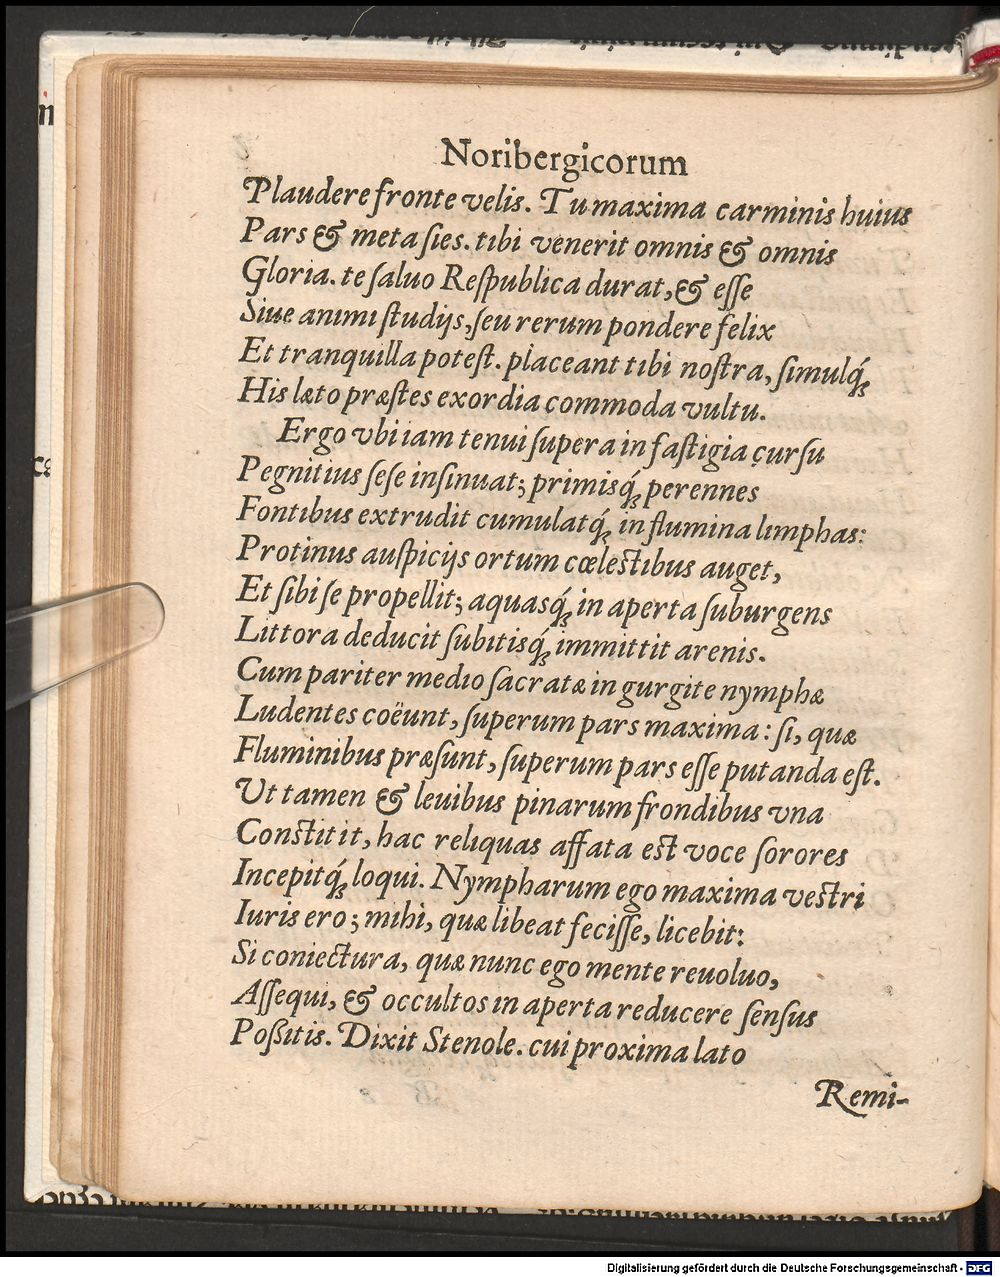 Noribergicorum
Plaudere fronte velis. Tu maxima carminis huius
Pars & meta sies. tibi venerit omnis & omnis
Gloria. te saluo Respublica durat, & esse
Siue animi studijs, seu rerum pondere felix
Et tranquilla potest. placeant tibi nostra, simulq́;
His læto præstes exordia commoda vultu.
Ergo vbi iam tenui supera in fastigia cursu
Pegnitius sese insinuat; primisq́; perennes
Fontibus extrudit cumulatq́; in flumina limphas:
Protinus auspicijs ortum cœlestibus auget,
Et sibi se propellit; aquasq́; in aperta suburgens
Littora deducit subitisq́; immittit arenis.
Cum pariter medio sacratæ in gurgite nymphæ
Ludentes coëunt, superum pars maxima: si, quæ
Fluminibus præsunt, superum pars esse putanda est.
Ut tamen & leuibus pinarum frondibus vna
Constitit, hac reliquas affata est voce sorores
Incepitq́; loqui. Nympharum ego maxima vestri
Iuris ero; mihi, quæ libeat fecisse, licebit:
Si coniectura, quæ nunc ego mente reuoluo,
Assequi, & occultos in aperta reducere sensus
Poßitis. Dixit Stenole. cui proxima lato
Remi-
Digitalisierung gefördert durch die Deutsche Forschungsgemeinschaft - DFG